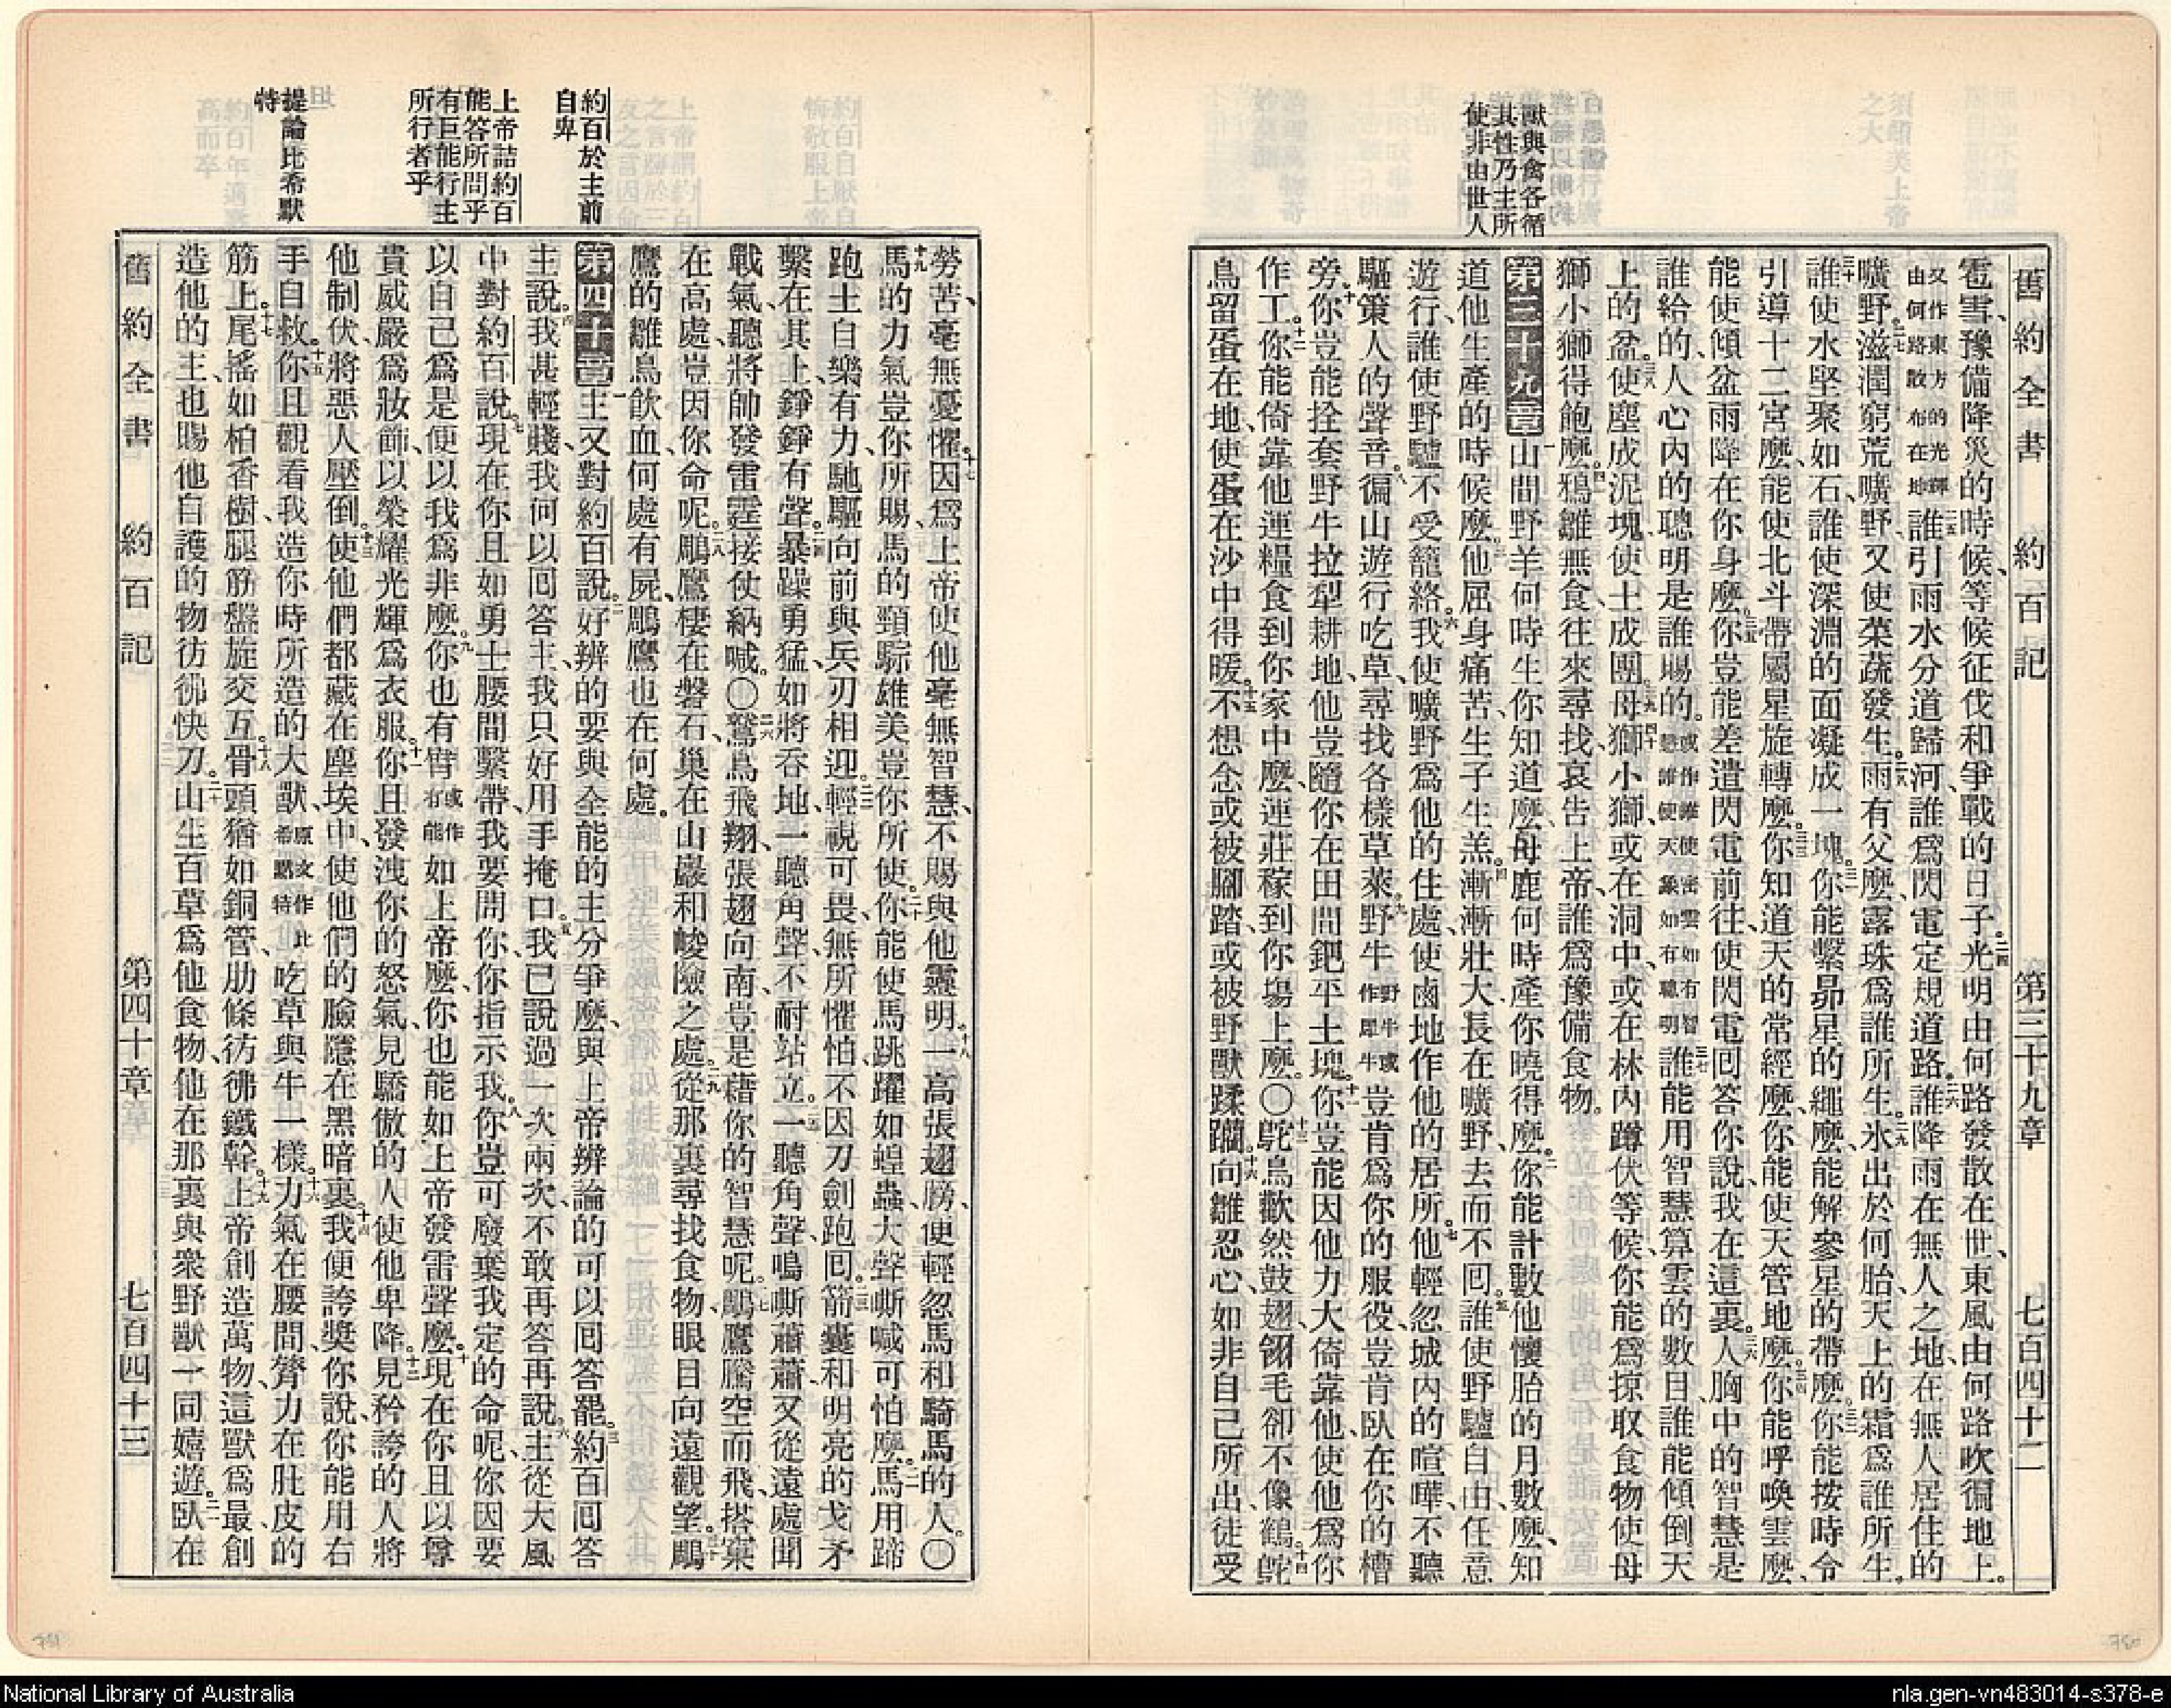 獸與禽各循
其性乃主所
使非由世人
舊約全書 約百記 第三十九章 七百四十二
雹雪、豫備降災的時候、等候征伐和爭戰的日子。二四光明由何路發散在世、東風由何路吹徧地上。
又作東方的光輝由何路散布在地二五誰引雨水分道歸河、誰爲閃電定規道路。二六誰降雨在無人之地、在無人居住的
曠野。二七滋潤窮荒曠野、又使菜蔬發生。二八雨有父麼、露珠爲誰所生。二九氷出於何胎、天上的霜爲誰所生。
三十誰使水堅聚如石、誰使深淵的面凝成一塊。三一你能繫昴星的繩麼、能解參星的帶麼。三二你能按時令
引導十二宮麼、能使北斗帶屬星旋轉麼。三三你知道天的常經麼、你能使天管地麼。三四你能呼喚雲麼、
能使傾盆雨降在你身麼。三五你豈能差遣閃電前往、使閃電回答你說、我在這裏。三六人胸中的智慧是
誰給的、人心內的聰明是誰賜的。或作誰使密雲如有智慧誰使天象如有聰明三七誰能用智慧算雲的數目、誰能傾倒天
上的盆。三八使塵成泥塊、使土成團。三九母獅小獅、四十或在洞中、或在林內蹲伏等候、你能爲掠取食物使母
獅小獅得飽麼。四一鴉雛無食往來尋找、哀告上帝、誰爲豫備食物。
第三十九章一山間野羊何時生你知道麼、母鹿何時產你曉得麼。二你能計數他懷胎的月數麼、知
道他生產的時候麼。三他屈身痛苦、生子生羔。四漸漸壯大、長在曠野、去而不回。五誰使野驢自由、任意
遊行、誰使野驢不受籠絡。六我使曠野爲他的住處、使鹵地作他的居所。七他輕忽城內的喧嘩、不聽
驅策人的聲音。八徧山遊行吃草、尋找各樣草萊。九野牛野牛或作犀牛豈肯爲你的服役、豈肯臥在你的槽
旁。十你豈能拴套野牛拉犁耕地、他豈隨你在田間鈀平土塊。十一你豈能因他力大倚靠他、使他爲你
作工。十二你能倚靠他連糧食到你家中麼、連莊稼到你塲上麼。〇十三鴕鳥歡然鼓翅、翎毛卻不像鶴。十四鴕
鳥留蛋在地、使蛋在沙中得暖。十五不想念或被腳踏、或被野獸蹂躪。十六向雛忍心、如非自己所出、徒受
約百於主前
自卑
上帝詰約百
能答所問乎
有巨能行主
所行者乎
提論比希默
特
勞苦、毫無憂懼。十七因爲上帝使他毫無智慧、不賜與他靈明。十八一高張翅膀、便輕忽馬和騎馬的人。〇
十九馬的力氣豈你所賜、馬的頸騌雄美豈你所使。二十你能使馬跳躍如蝗蟲、大聲嘶喊可怕麼。二一馬用蹄
跑土自樂有力、馳驅向前與兵刃相迎。二二輕視可畏、無所懼怕、不因刀劍跑回。二三箭囊和明亮的戈矛
繫在其上錚錚有聲。二四暴躁勇猛、如將吞地、一聽角聲、不耐站立。二五一聽角聲、鳴嘶蕭蕭、又從遠處聞
戰氣、聽將帥發雷霆接仗納喊。〇二六鷙鳥飛翔、張翅向南、豈是藉你的智慧呢。二七鵰鷹騰空而飛、搭窠
在高處、豈因你命呢。二八鵰鷹棲在磐石、巢在山巖和峻險之處。二九從那裏尋找食物、眼目向遠觀望。三十鵰
鷹的雛鳥飲血、何處有屍、鵰鷹也在何處。
第四十章一主又對約百說。二好辨的要與全能的主分爭麼、與上帝辨論的可以回答罷。三約百回答
主說。四我甚輕賤、我何以回答主、我只好用手掩口。五我已說過一次兩次、不敢再答再說。六主從大風
中對約百說。七現在你且如勇士腰間繫帶、我要問你、你指示我。八你豈可廢棄我定的命呢、你因要
以自己爲是、便以我爲非麼。九你也有臂或作有能如上帝麼、你也能如上帝發雷聲麼。十現在你且以尊
貴威嚴爲妝飾、以榮耀光輝爲衣服。十一你且發洩你的怒氣、見驕傲的人使他卑降。十二見矜誇的人將
他制伏、將惡人壓倒。十三使他們都藏在塵埃中、使他們的臉隱在黑暗裏。十四我便誇奬你說、你能用右
手自救。十五你且觀看我造你時所造的大獸、原文作比希默特吃草與牛一樣。十六力氣在腰間、膂力在肚皮的
筋上。十七尾搖如柏香樹、腿筋盤旋交互。十八骨頭猶如銅管、肋條彷彿鐵幹。十九上帝創造萬物、這獸爲最、創
造他的主、也賜他自護的物彷彿快刀。二十山生百草爲他食物、他在那裏與衆野獸一同嬉遊。二一臥在
舊約全書 約百記 第四十章 七百四十三
751
750
National Library of Australia
nla.gen-vn483014-s378-e